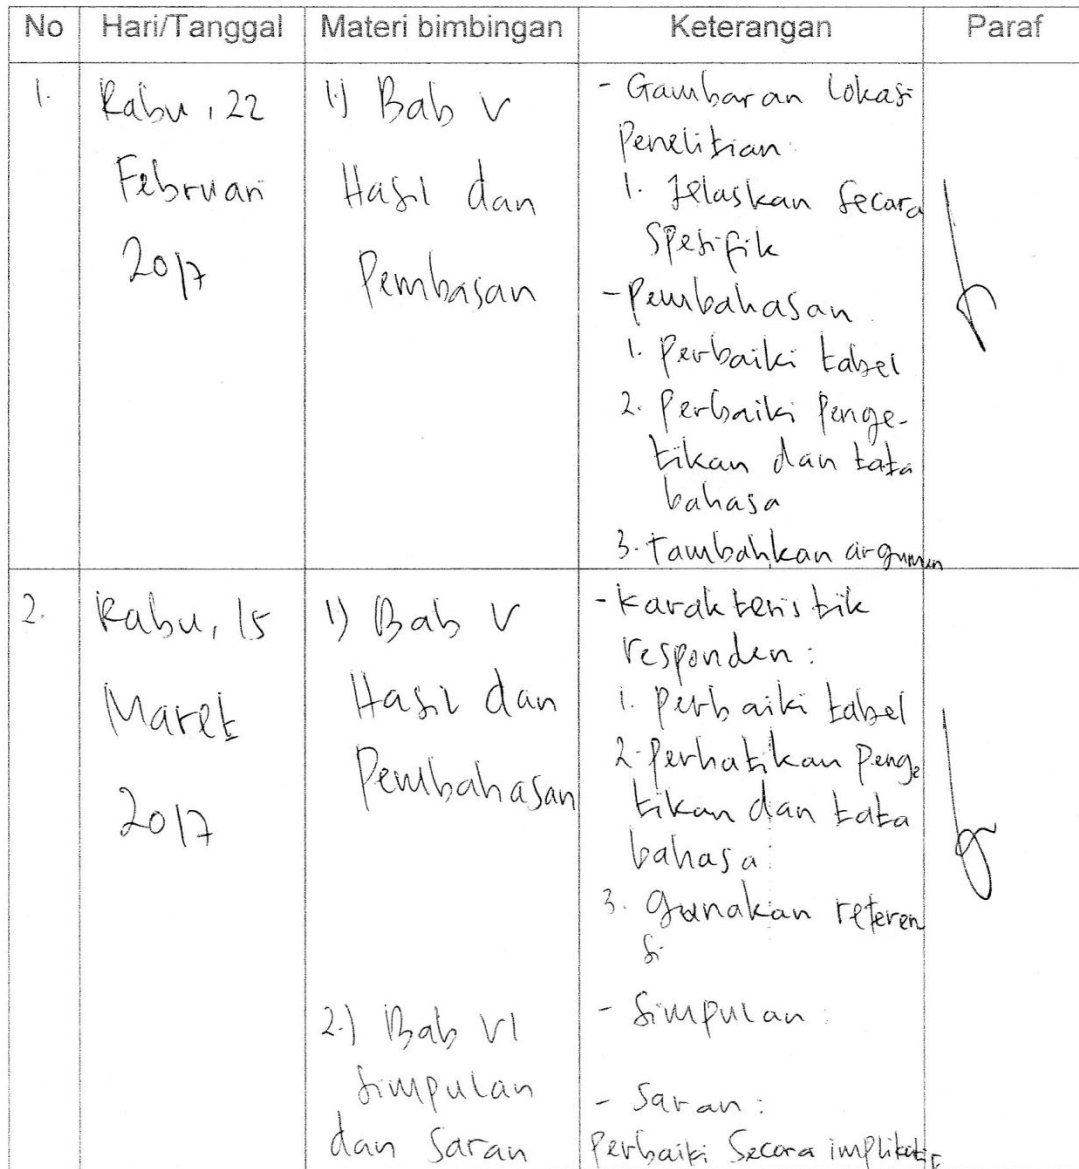 No Hari/Tanggal Materi bimbingan Keterangan Paraf
1.
Rabu, 22
Februari
2017
1.) Bab V
Hasil dan
Pembasan
- Gambaran lokasi
Penelitian:
1. Jelaskan secara
Spesifik
- Pembahasan
1. Perbaiki tabel
2. Perbaiki Penge-
tikan dan tata
bahasa
3. tambahkan argumen
2.
Rabu, 15
Maret
2017
1) Bab V
Hasil dan
Pembahasan
2.) Bab VI
Simpulan
dan Saran
- karakteristik
responden:
1. Perbaiki tabel
2. Perhatikan Penge
tikan dan tata
bahasa
3. gunakan referen
si
- Simpulan:
- Saran:
Perbaiki Secara implikatif